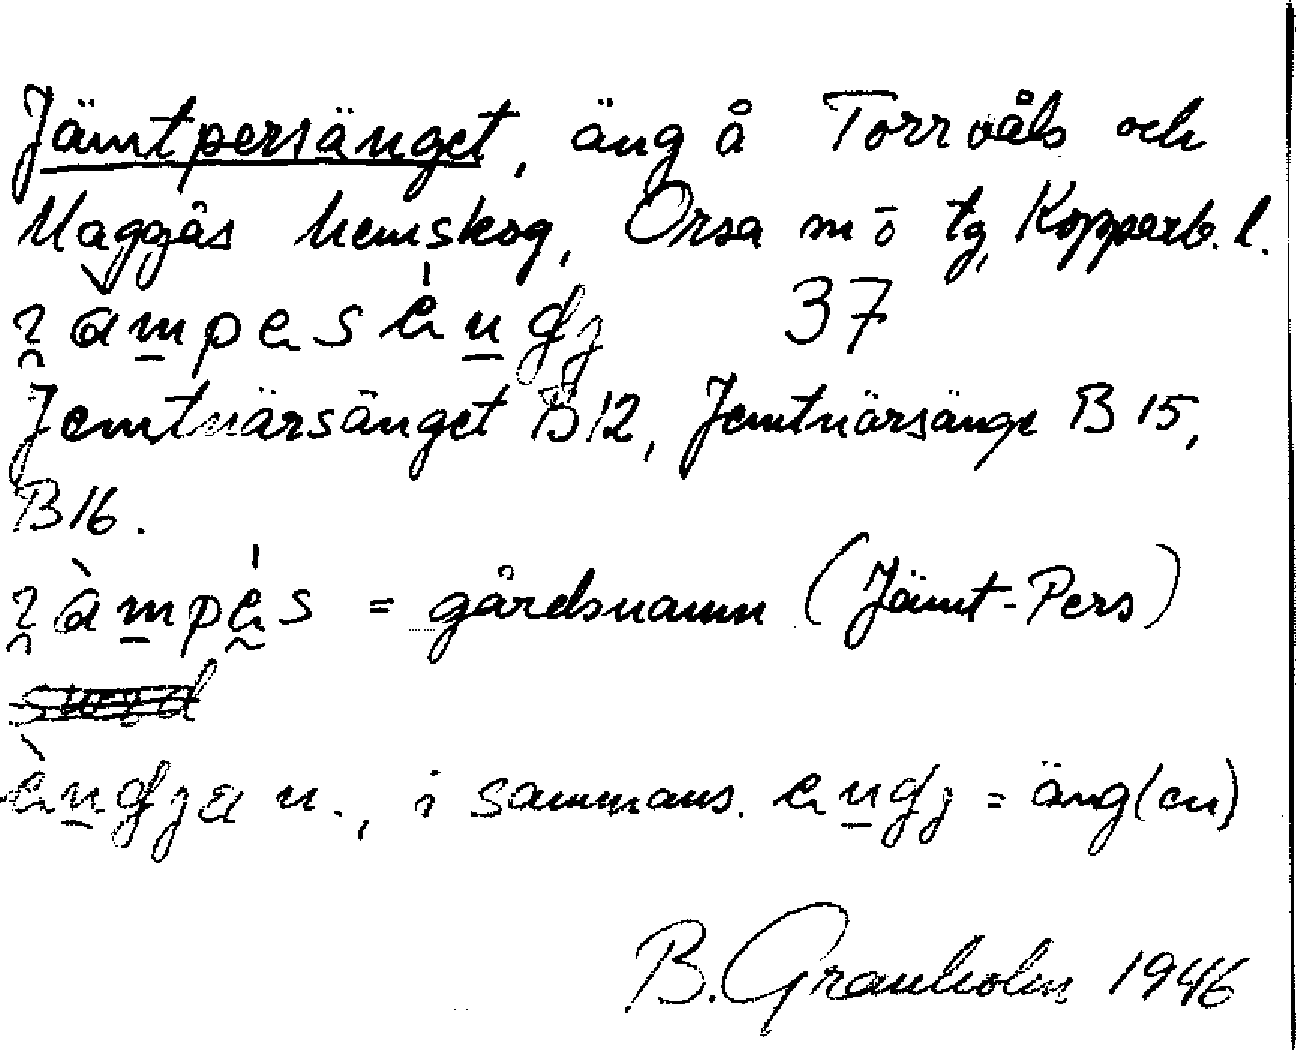 Jämtpersänget, äng å Torrvåls och
Maggås hemskog, Orsa m ö tg, Kopparb. l.
37
Jemtnärsänget B12, Jemtnärsänge B 15,
B16.
= gårdsnamn (Jämt-Pers)
n., i sammans. = äng(en)
B. Granholm 1946